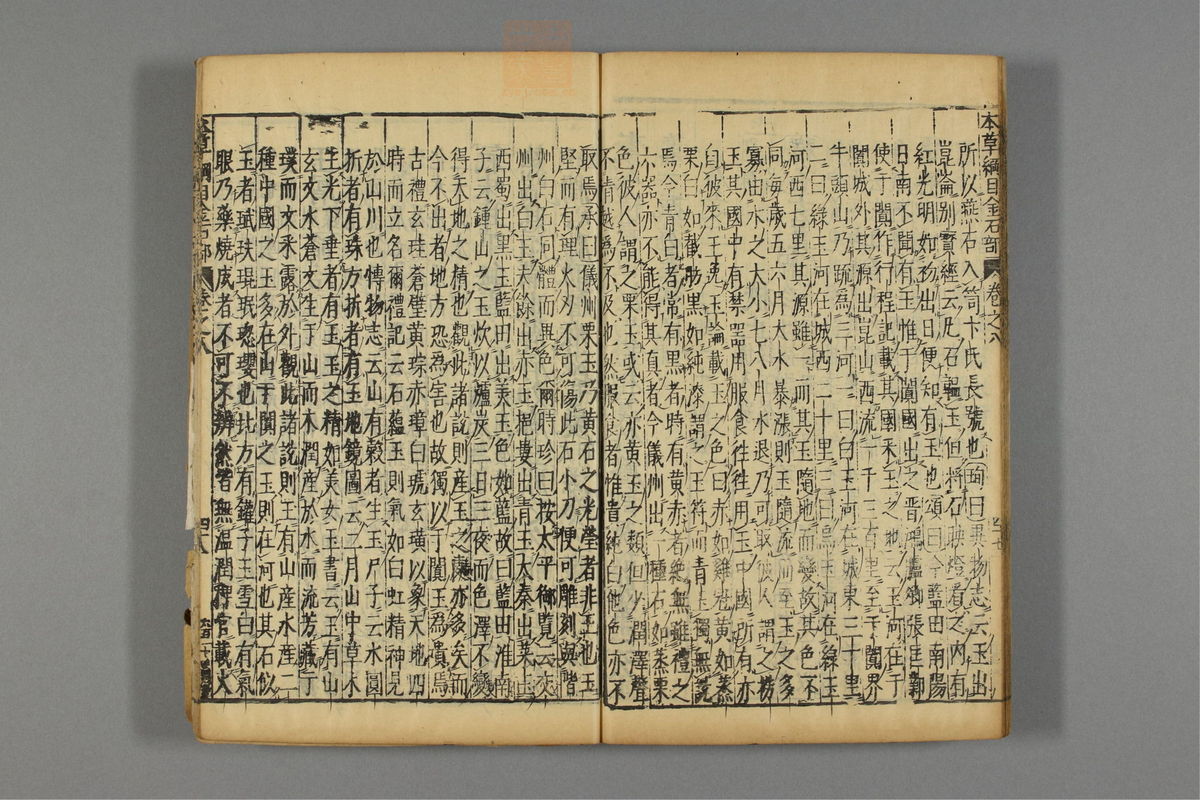 本草綱目金石部 卷之八
所以燕石入笥卞氏長號也頌曰異物志云玉出
崑崙别寳經云凡石韞玉但將石映燈看之內有
紅光明如初出日便知有玉也頌曰今藍田南陽
日南不聞有玉惟于闐國出之晋鴻臚卿張匡鄴
使于闐作行程記載其國采玉之地云玉河在于
闐城外其源出崑山西流一千三百里至于闐界
牛頭山乃䟽為三河一曰白玉河在城東三十里
二曰綠玉河在城西二十里三曰烏玉河在綠玉
河西七里其源雖一而其玉隨地而變故其色不
同每歲五六月大水暴漲則玉隨流而至玉之多
寡由水之大小七八月水退乃可取彼人謂之撈
玉其國中有禁器用服食徃徃用玉中國所有亦
自彼來王逸玉論載玉之色曰赤如雞冠黃如蒸
栗白如截肪黑如純漆謂之玉符而青玉獨無説
焉今青白者常有黑者時有黃赤者絶無雖禮之
六器亦不能得其真者今儀州出一種石如蒸栗
色彼人謂之栗玉或云亦黃玉之類但少潤澤聲
不清越為不及也然服食者惟貴純白他色亦不
取焉承曰儀州栗玉乃黃石之光瑩者非玉也玉
堅而有理火刃不可傷此石小刀便可雕刻與階
州白石同體而異色爾時珍曰按太平御覧云交
州出白玉夫餘出赤玉挹婁出青玉大秦出菜玉
西蜀出黑玉藍田出美玉色如藍故曰藍田淮南
子云鍾山之玉炊以爐炭三日三夜而色澤不變
得天地之精也觀此諸説則産玉之處亦多矣而
今不出者地方恐為害也故獨以于闐玉為貴焉
古禮玄珪蒼璧黃琮赤璋白琥玄璜以象天地四
時而立名爾禮記云石藴玉則氣如白虹精神見
於山川也愽物志云山有穀者生玉尸子云水圓
折者有珠方折者有玉地鏡圖云二月山中草木
生光下垂者有玉玉之精如美女玉書云玉有山
玄文水蒼文生于山而木潤産於水而流芳藏于
璞而文采露於外觀此諸説則玉有山産水産二
種中國之玉多在山于闐之玉則在河也其石似
玉者珷玞琨珉璁瓔也北方有罐子玉雪白有氣
眼乃藥燒成者不可不辨然皆無温潤稗官載火
本草綱目金石部 卷之八 四十八